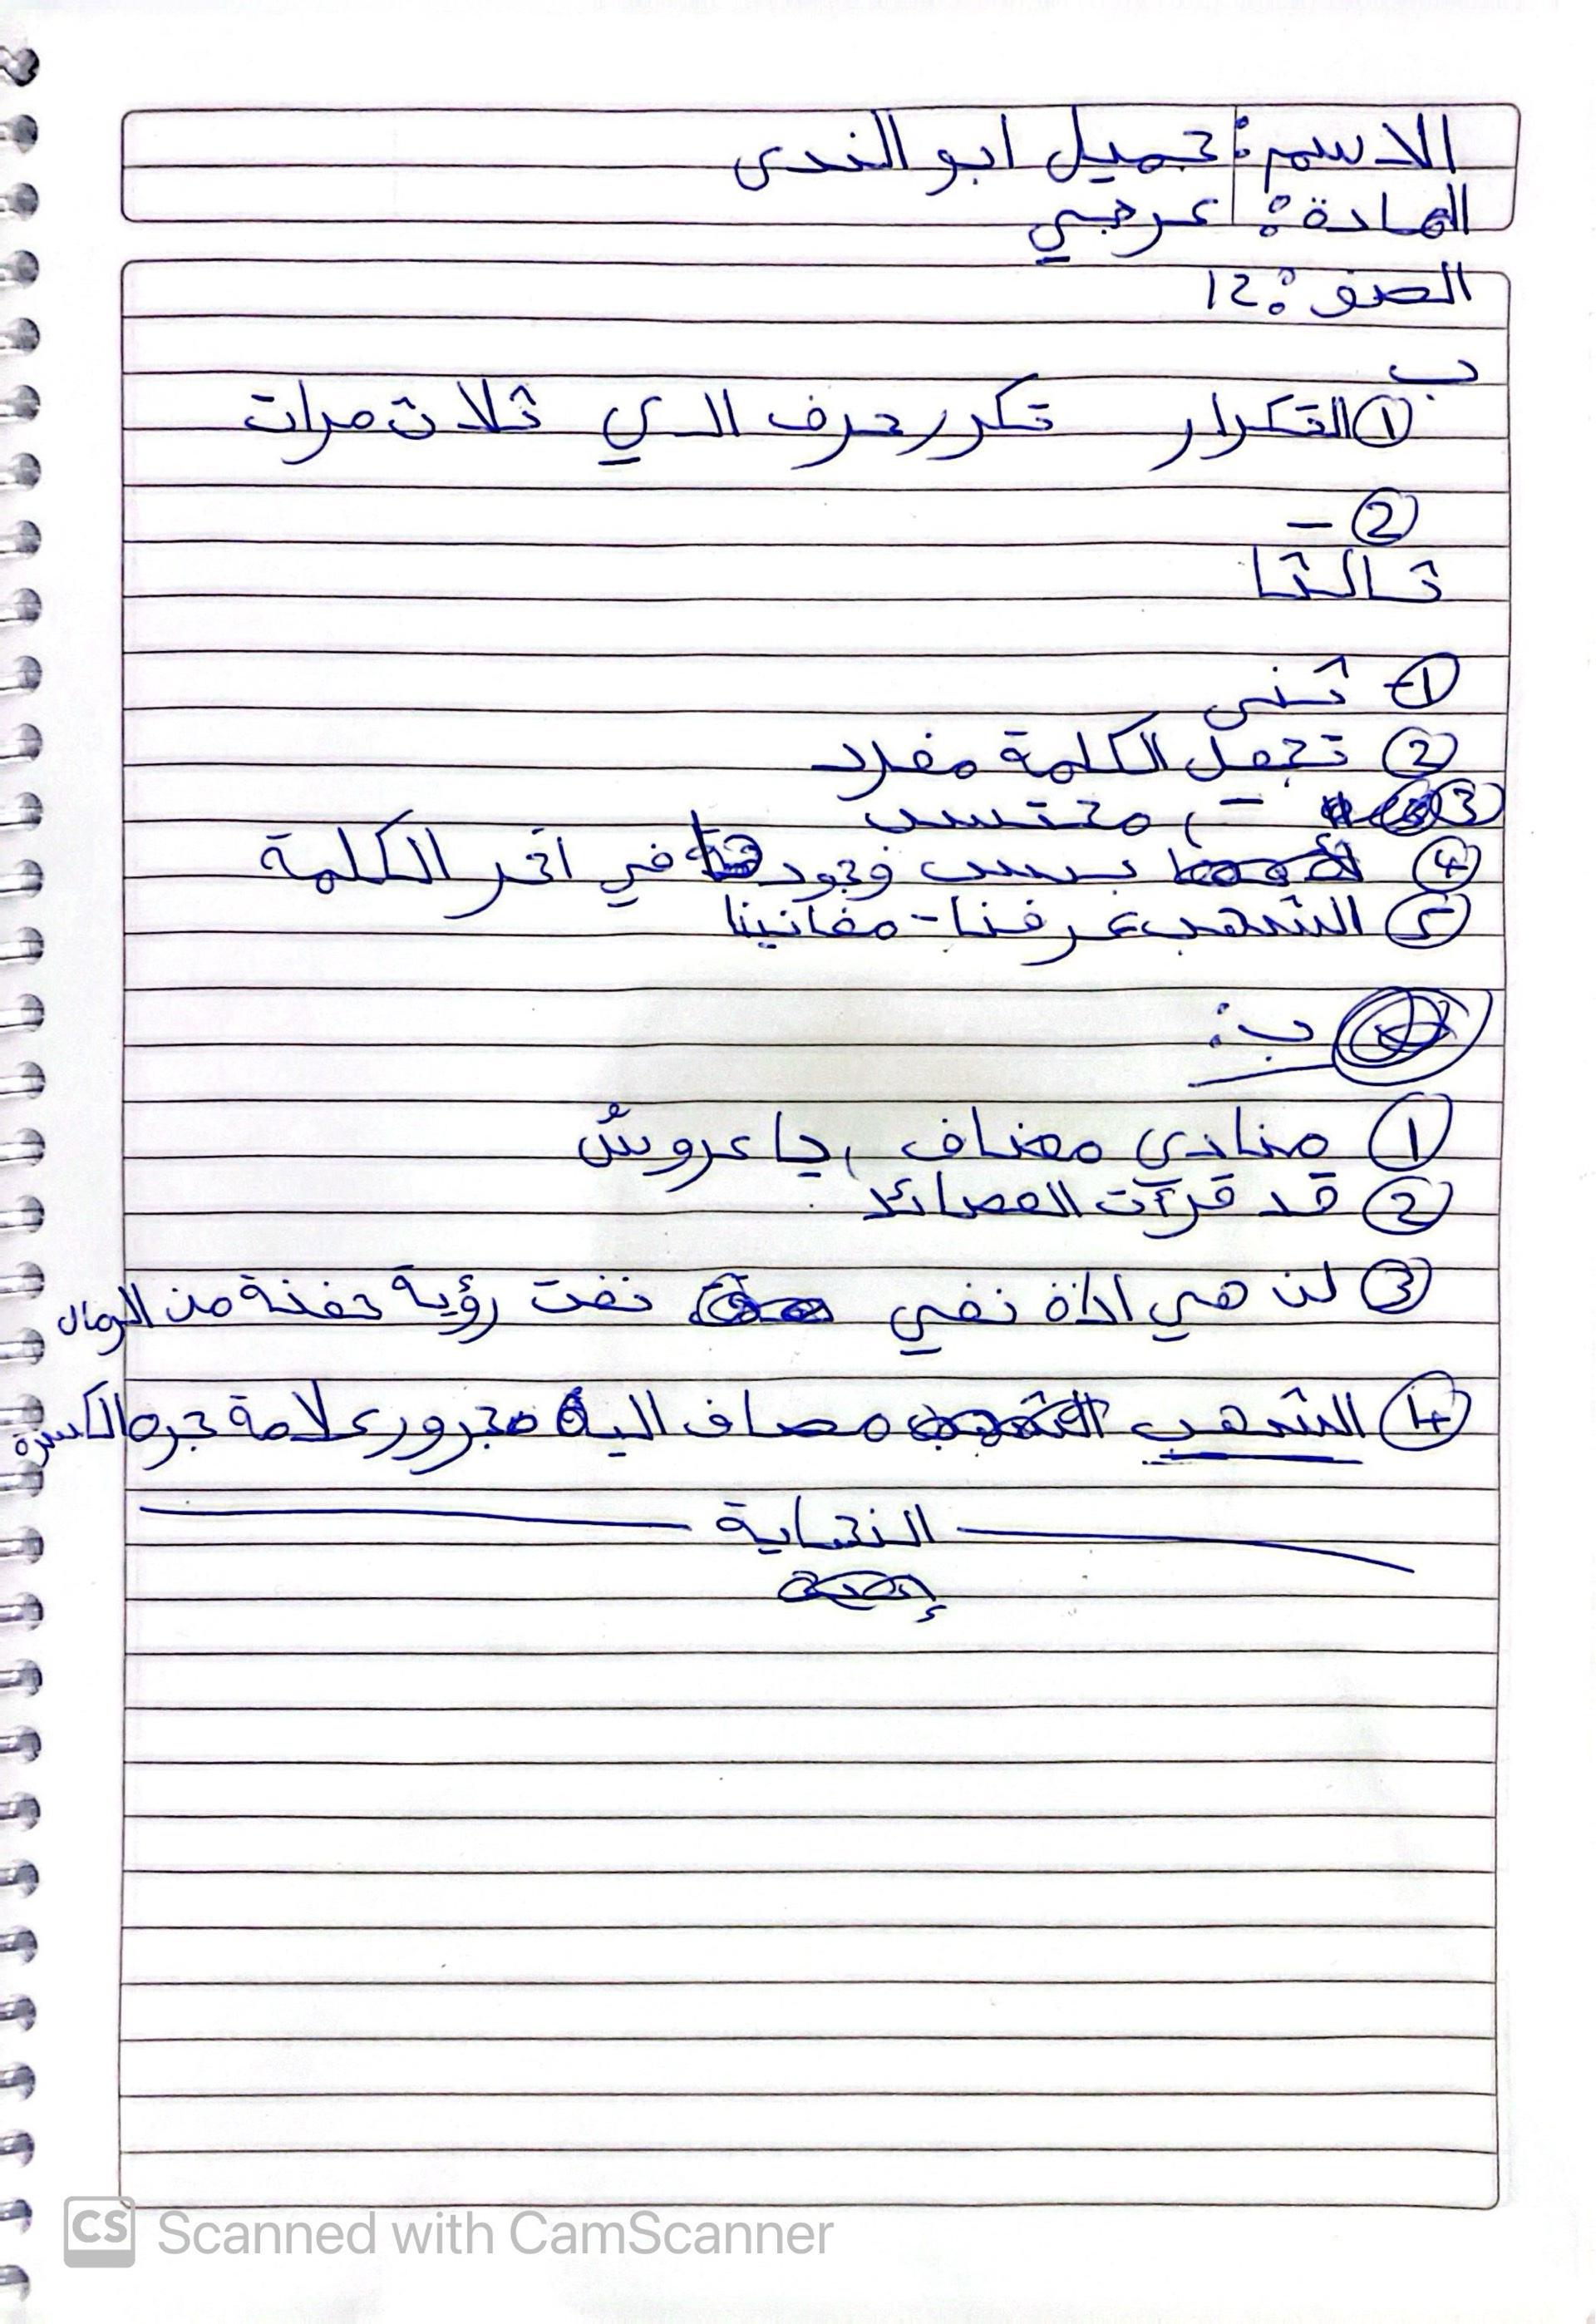 الاسم: جميل ابو الندى
المادة: عربي
الصف: 12
ب
① التكرار تكرر حرف الـ ي ثلاث مرات
② -
ثالثا
① ثنى
② تجعل الكلمة مفرد
③ - ، محتسب
④ بسبب وجودها في اخر الكلمة
⑤ الشهب عرفنا - مغانينا
ب:
① منادي مضاف ، يا عروسُ
② قد قرأت القصائد
③ لن هي اداة نفي نفت رؤية حفنة من الرمال
④ الشهب مضاف اليه مجرور علامة جره الكسرة
النهاية
CS Scanned with CamScanner